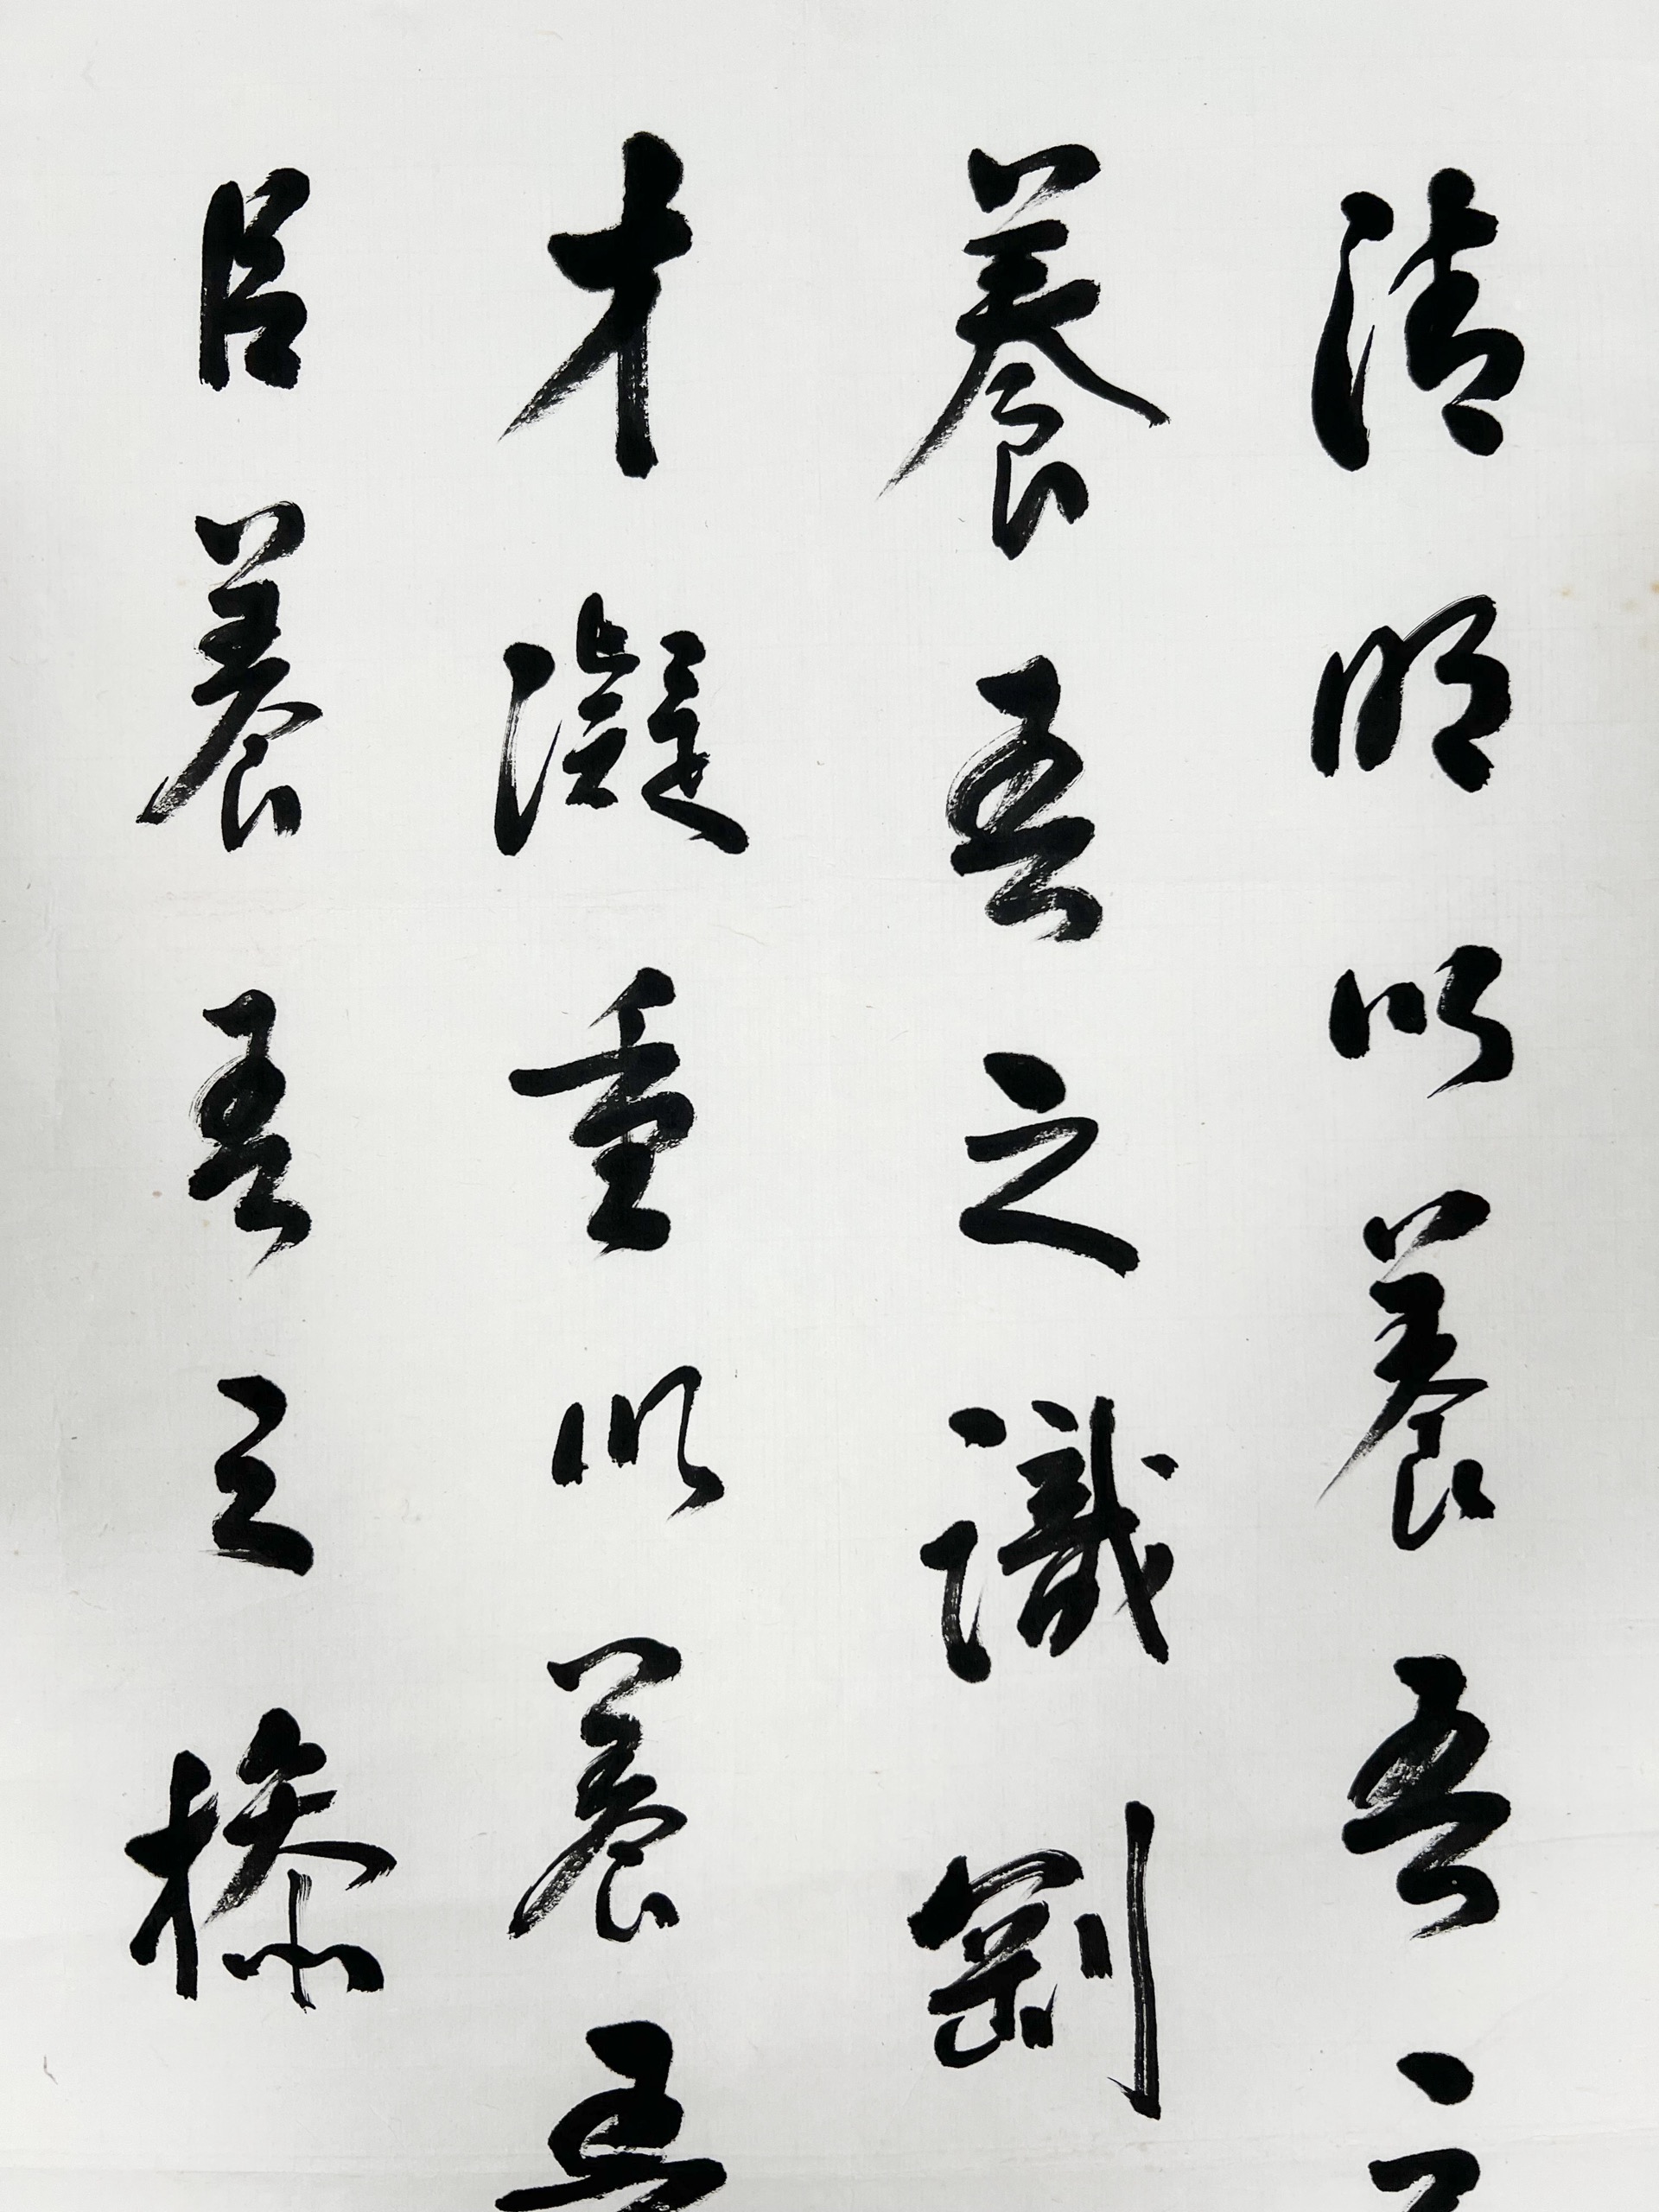 清明以養吾之
養吾之識剛
才凝重以養吾
㠯養吾之操